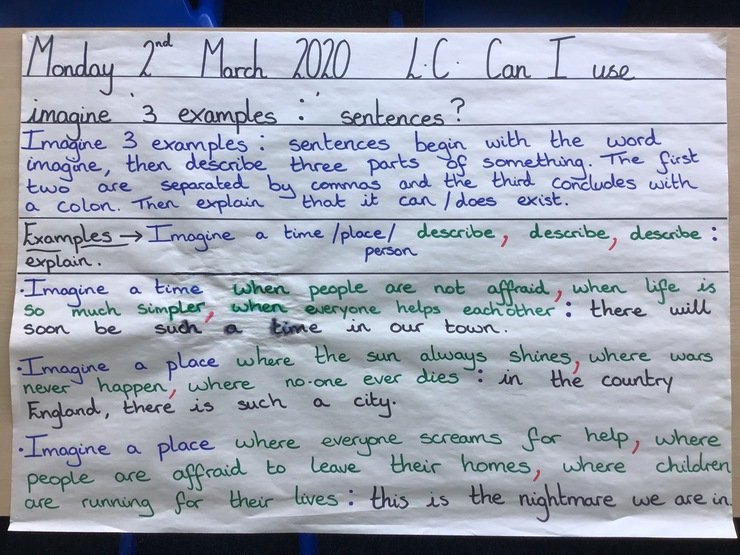 Monday 2nd March 2020 L.C. Can I use
imagine '3 examples :' sentences?
Imagine 3 examples : sentences begin with the word
imagine, then describe three parts of something. The first
two are separated by commas and the third concludes with
a colon. Then explain that it can / does exist.
Examples → Imagine a time /place/ describe, describe, describe :
person
explain.
·Imagine a time when people are not affraid, when life is
so much simpler, when everyone helps each other : there will
soon be such a time in our town.
·Imagine a place where the sun always shines, where wars
never happen, where no-one ever dies : in the country
England, there is such a city.
·Imagine a place where everyone screams for help, where
people are affraid to leave their homes, where children
are running for their lives : this is the nightmare we are in.